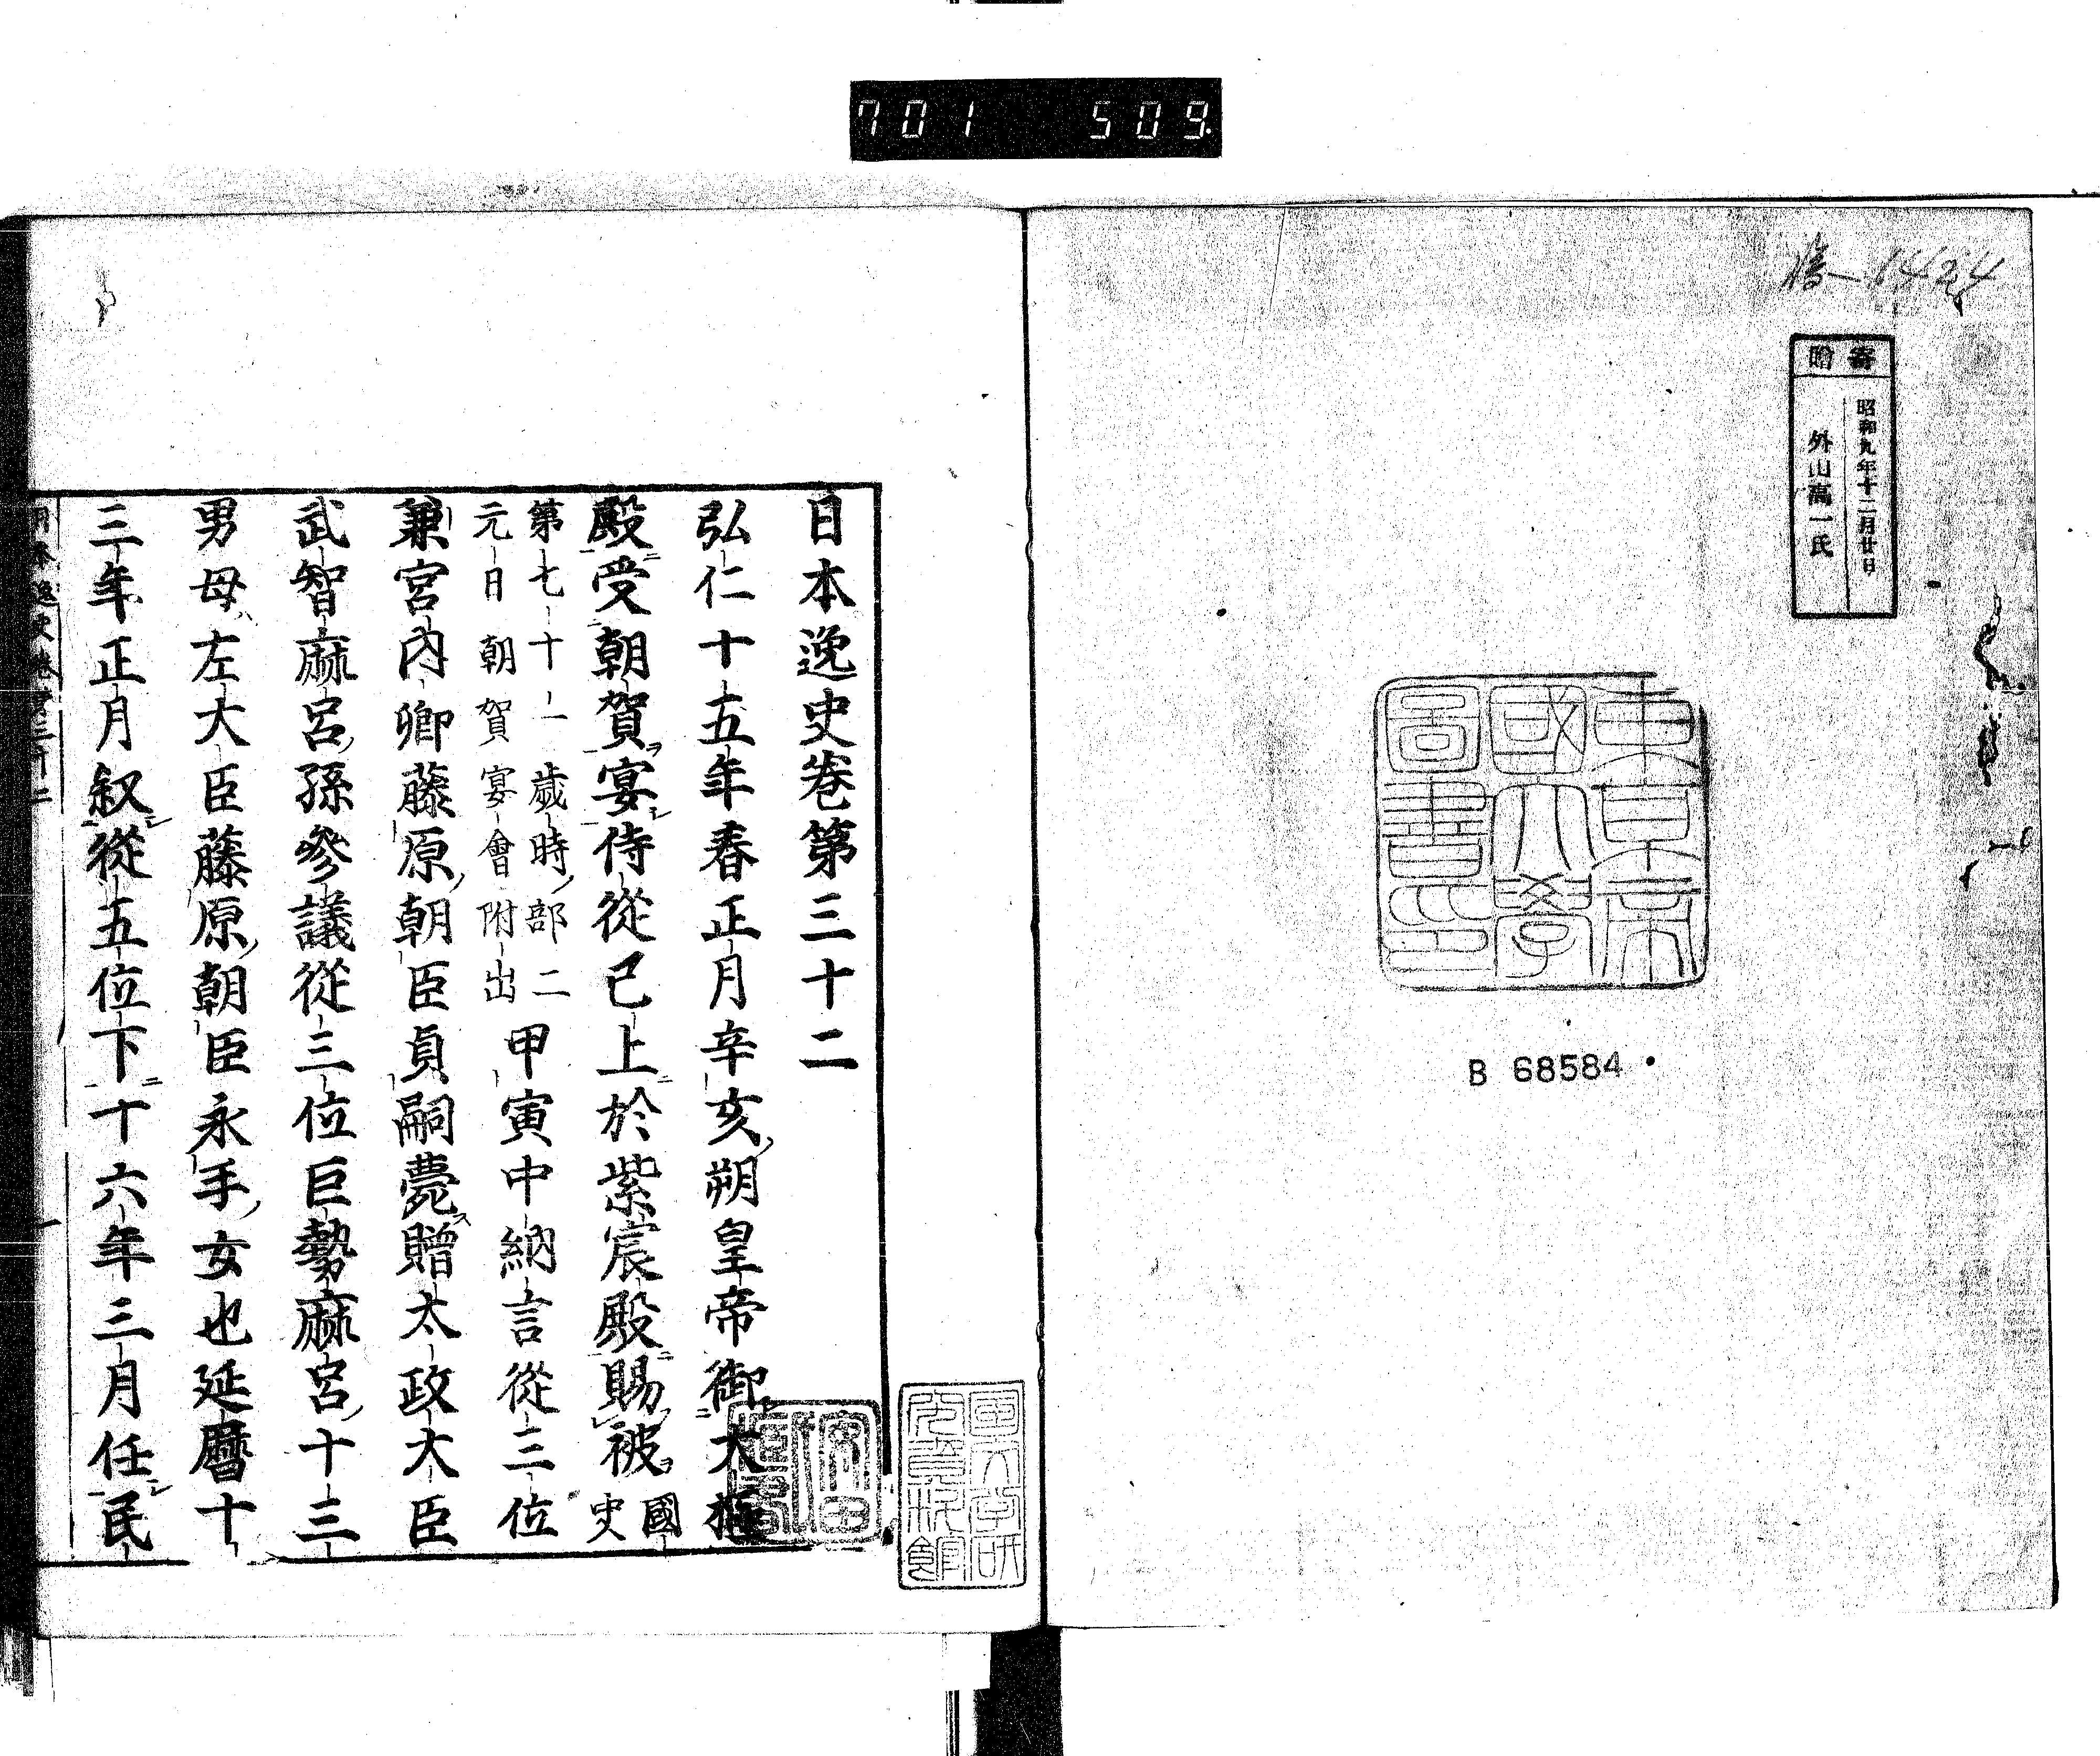 701 509
1424
寄贈
昭和九年十二月廿日
外山高一氏
東京帝
國大學
圖書印
B 68584
日本逸史卷第三十二
弘仁十五年春正月辛亥朔皇帝御大極
殿受朝賀宴侍從已上於紫宸殿賜被國史
第七十一歲時部二
元日朝賀宴會附出
甲寅中納言從三位
兼宮內卿藤原朝臣貞嗣薨贈太政大臣
武智麻呂孫參議從三位巨勢麻呂十三
男母左大臣藤原朝臣永手女也延曆十
三年正月叙從五位下十六年三月任民